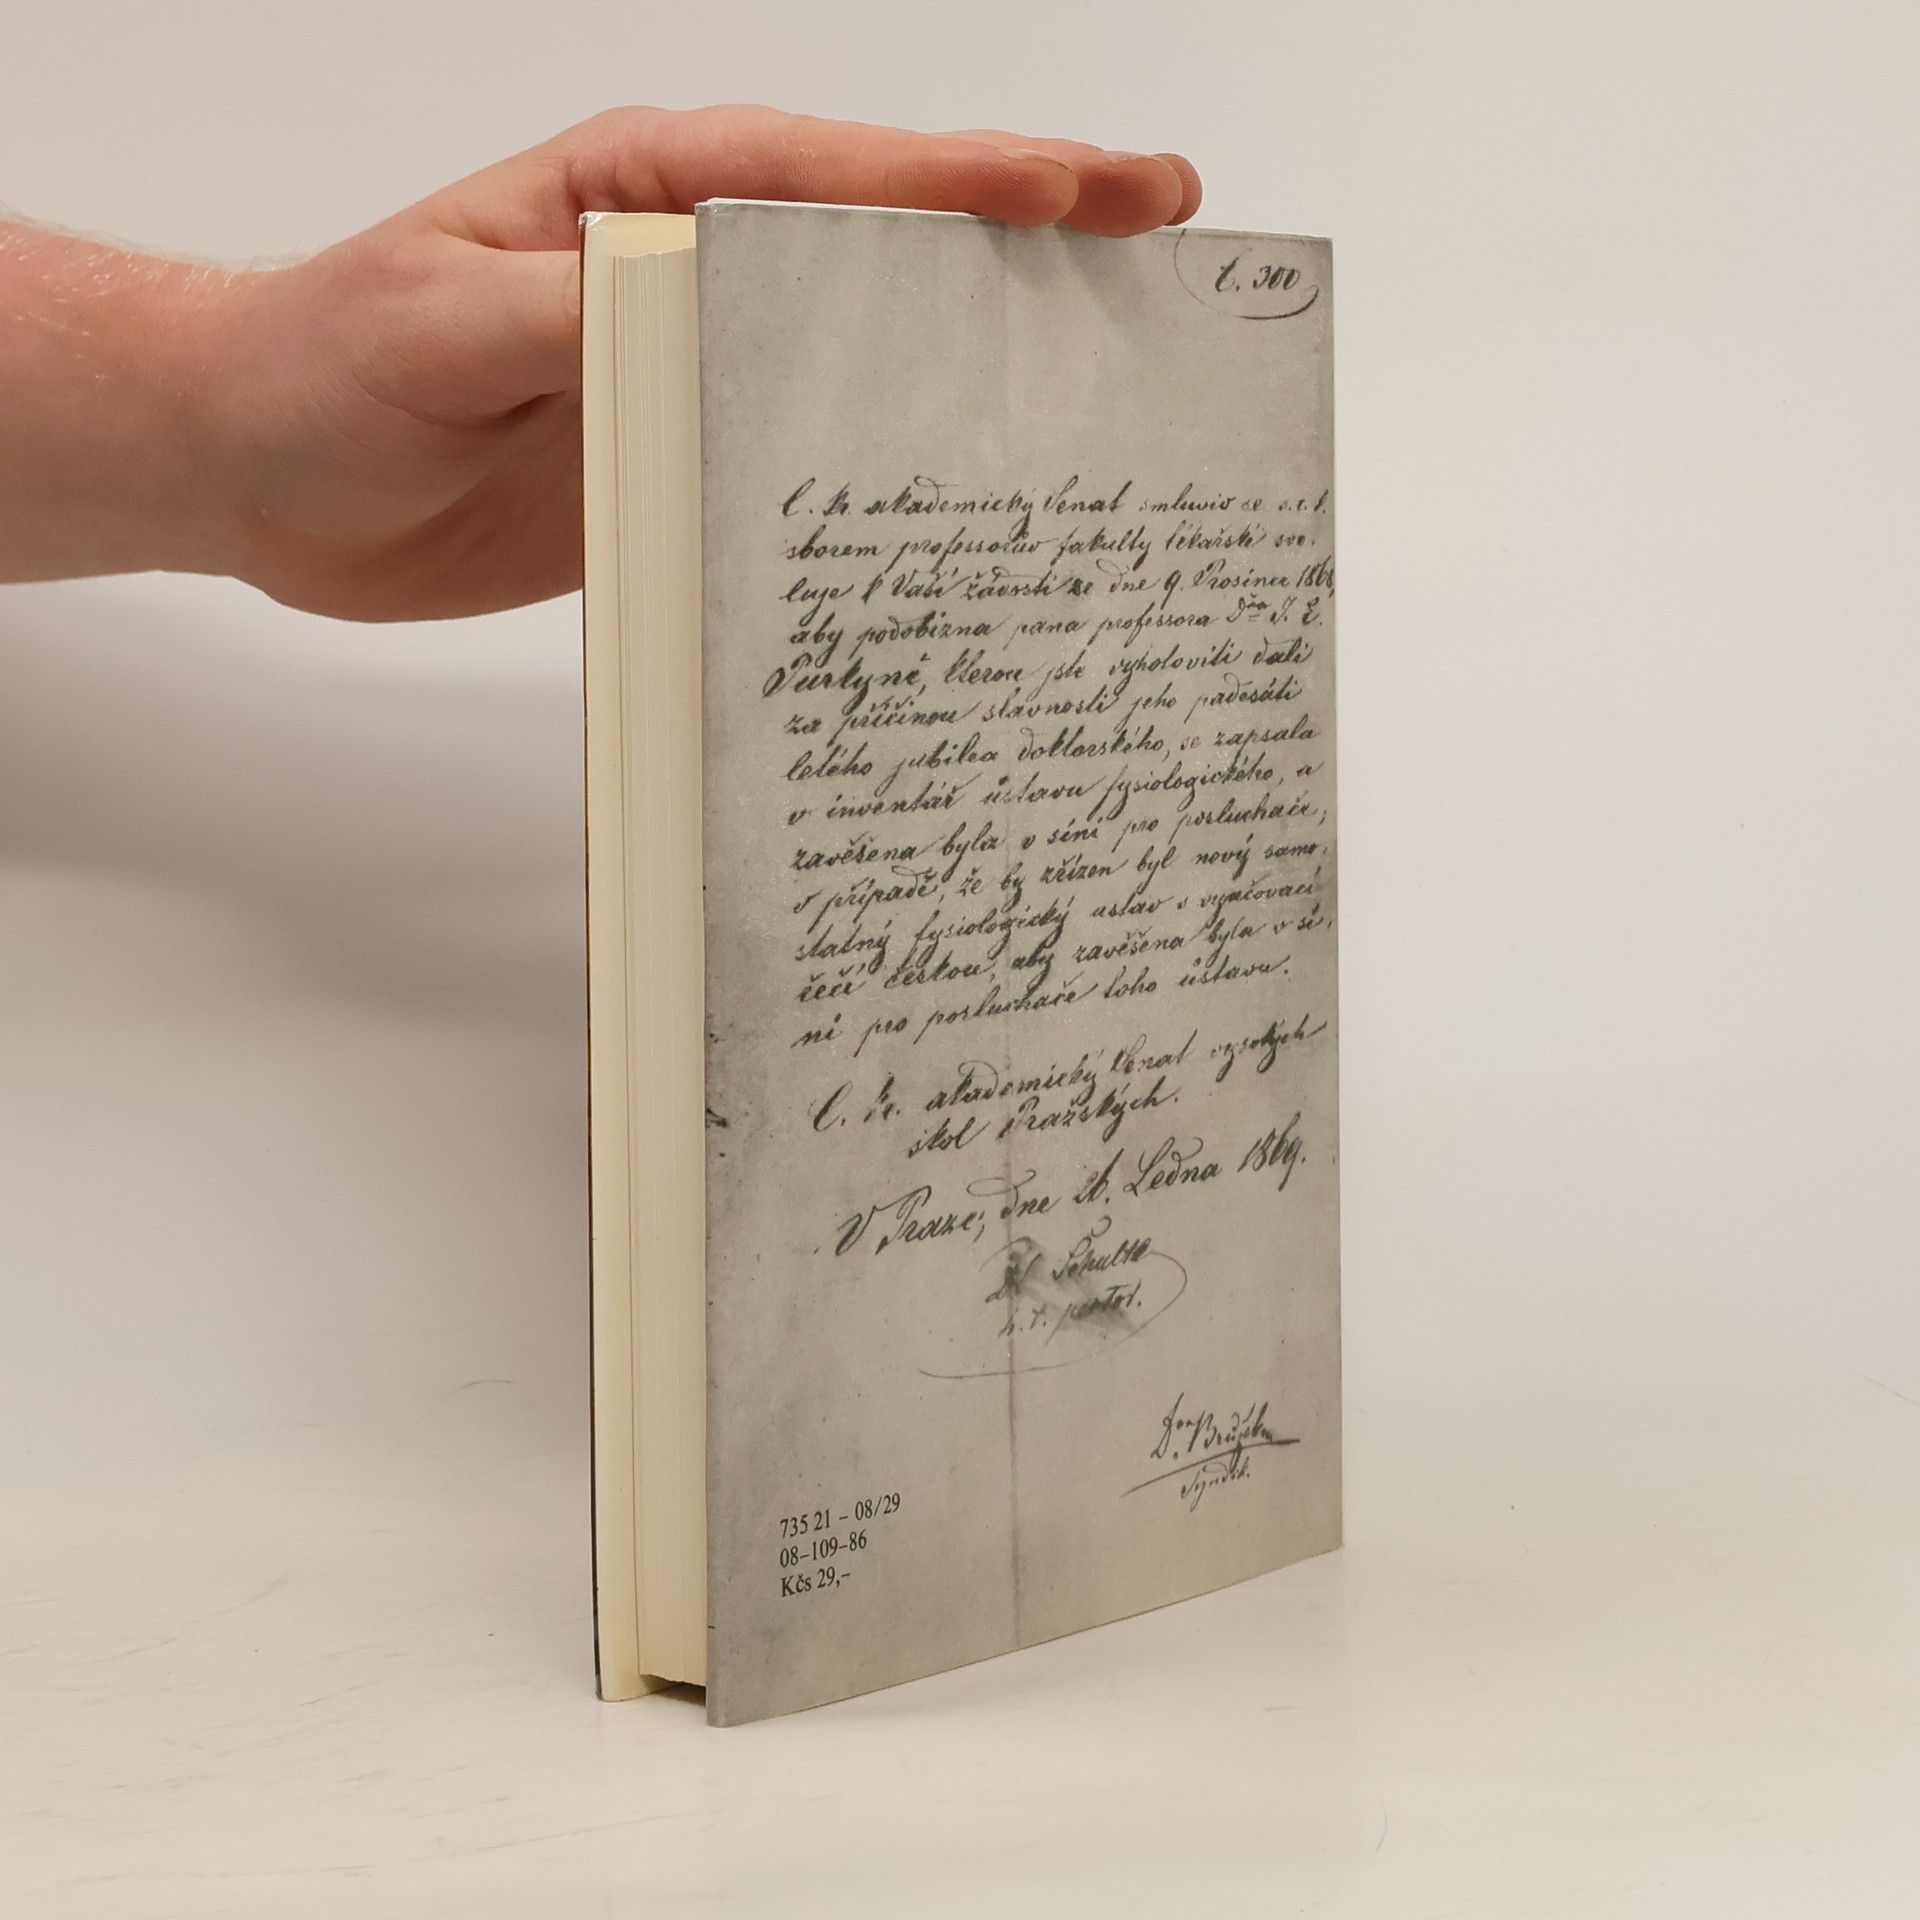 č. 300
C. k. akademický Senat smluviv se s. c. k.
sborem professorův fakulty lékařské svo-
luje k Vaší žádosti ze dne 9. Prosince 1868,
aby podobizna pana professora Dra J. E.
Purkyně, kterou jste vyhotoviti dali
za příčinou slavnosti jeho padesáti
letého jubilea doktorského, se zapsala
v inventář ůstavu fysiologického, a
zavěšena byla v síni pro posluchače;
v případě, že by zřízen byl nový samo-
statný fysiologický ustav s vyučovací
řečí českou, aby zavěšena byla v sí-
ni pro posluchače toho ůstavu.
C. k. akademický Senat vysokých
škol Pražských.
V Praze, dne 26. Ledna 1869.
Dr Schulte
h. t. rector.
Syndik.
735 21 – 08/29
08–109–86
Kčs 29,–